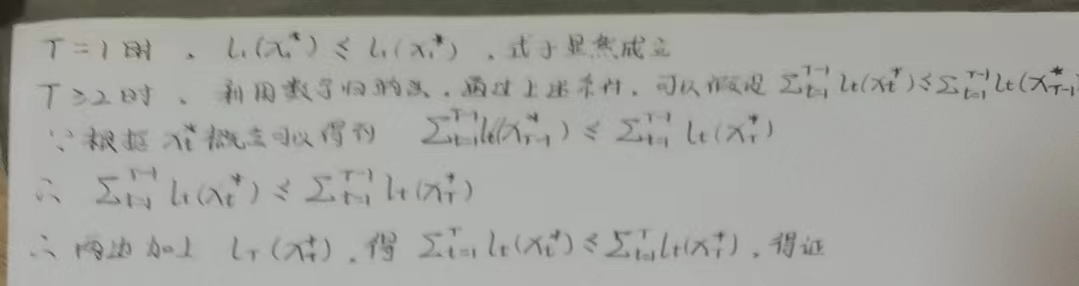 T=1时，l₁(x₁*) ≤ l₁(x₁*)，式子显然成立
T≥2时，利用数学归纳法，通过上述条件，可以假设 Σ_{t=1}^{T-1} l_t(x_t*) ≤ Σ_{t=1}^{T-1} l_t(x_{T-1}*)
∵根据 x_t* 概念可以得到 Σ_{t=1}^{T-1} l_t(x_{T-1}*) ≤ Σ_{t=1}^{T-1} l_t(x_T*)
∴ Σ_{t=1}^{T-1} l_t(x_t*) ≤ Σ_{t=1}^{T-1} l_t(x_T*)
∴两边加上 l_T(x_T*)，得 Σ_{t=1}^{T} l_t(x_t*) ≤ Σ_{t=1}^{T} l_t(x_T*)，得证